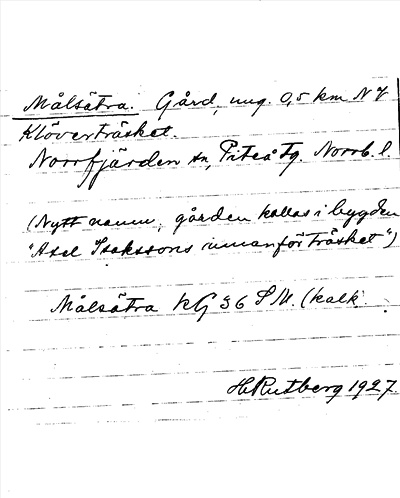 Målsätra. Gård, ung. 0,5 km NV
Klöverträsket.
Norrfjärden sn, Piteå tg. Norrb. l.
(Nytt namn, gården kallas i bygden
"Axel Isakssons innanför träsket")
Målsätra KG 36 SV. (kalk.
H. Rutberg 1927.